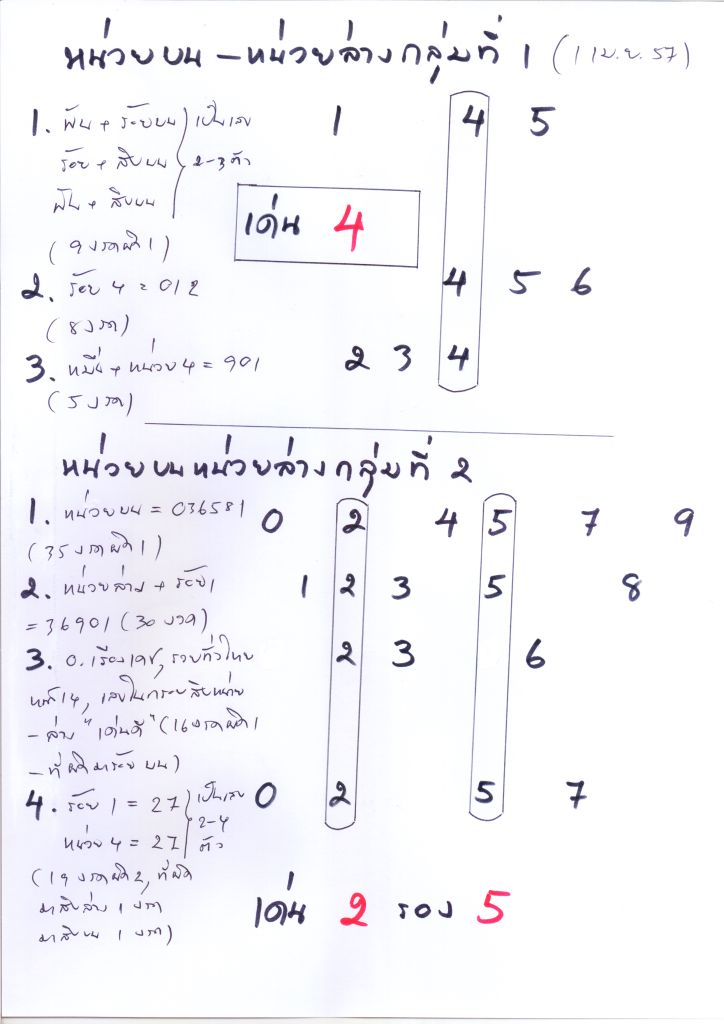 หน่วยบน – หน่วยล่าง กลุ่มที่ 1 (1 เม.ย. 57)
1. พัน + ร้อยบน เป็นเลข 1 4 5
ร้อย + สิบบน 2-3 ตัว
พัน + สิบบน
เด่น 4
(9 งวดผิด 1)
2. ร้อย 4 = 012 4 5 6
(8 งวด)
3. หมื่น + หน่วย 4 = 901 2 3 4
(5 งวด)
หน่วยบน หน่วยล่าง กลุ่มที่ 2
1. หน่วยบน = 036581 0 2 4 5 7 9
(35 งวดผิด 1)
2. หน่วยล่าง + ร้อย, 1 2 3 5 8
= 36901 (30 งวด)
3. อ. เรือง รวยทั่วไทย 2 3 6
หน้า 14, เลขในกรอบสิบหน่วย
– ล่าง "เด่นดี" (16 งวดผิด 1
– ที่ผิดมาร้อยบน)
4. ร้อย 1 = 27 เป็นเลข 0 2 5 7
2-4
หน่วย 4 = 27 ตัว
(19 งวดผิด 2, ที่ผิด
มาสิบล่าง 1 งวด
เด่น 2 รอง 5
มาสิบบน 1 งวด)